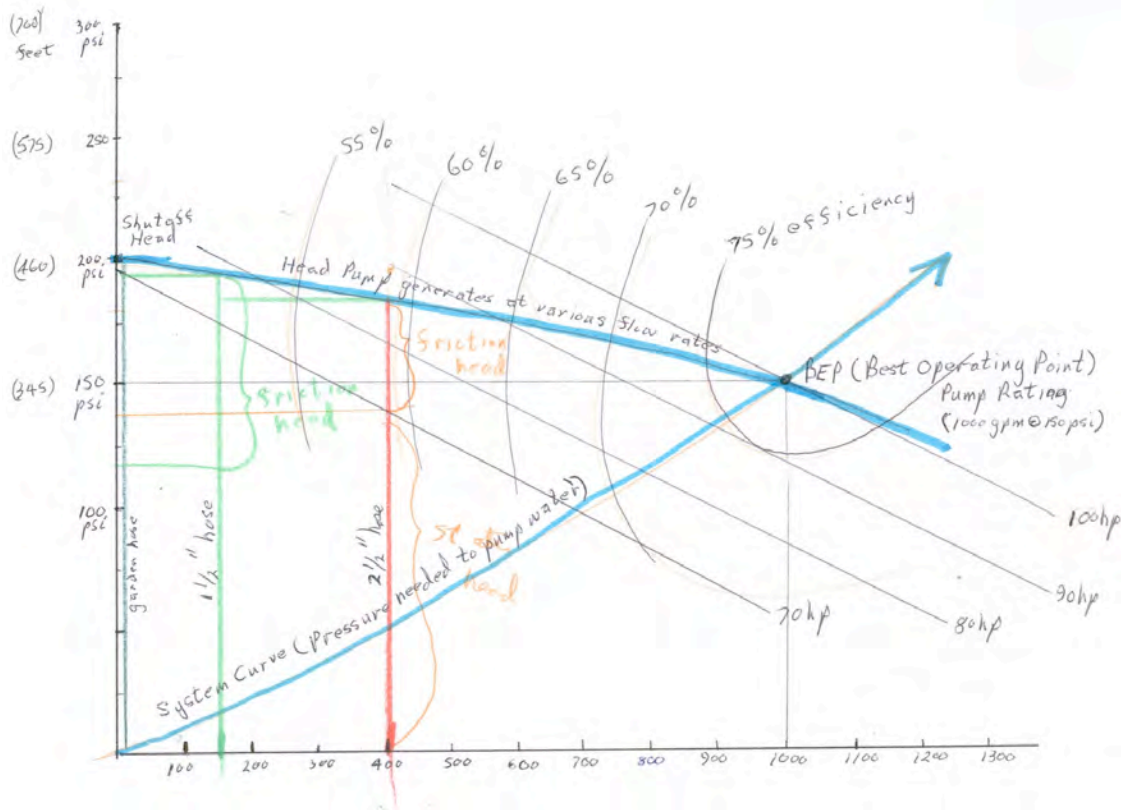 (700)
feet
300
psi
(575)
250
55%
60%
65%
70%
75% efficiency
Shutoff
Head
(460)
200
psi
Head Pump generates at various flow rates
friction
head
BEP (Best Operating Point)
Pump Rating
(1000gpm@150psi)
(345)
150
psi
friction
head
100
psi
garden hose
1 1/2" hose
2 1/2" hose
head
System Curve (Pressure needed to pump water)
70hp
80hp
90hp
100hp
100 200 300 400 500 600 700 800 900 1000 1100 1200 1300